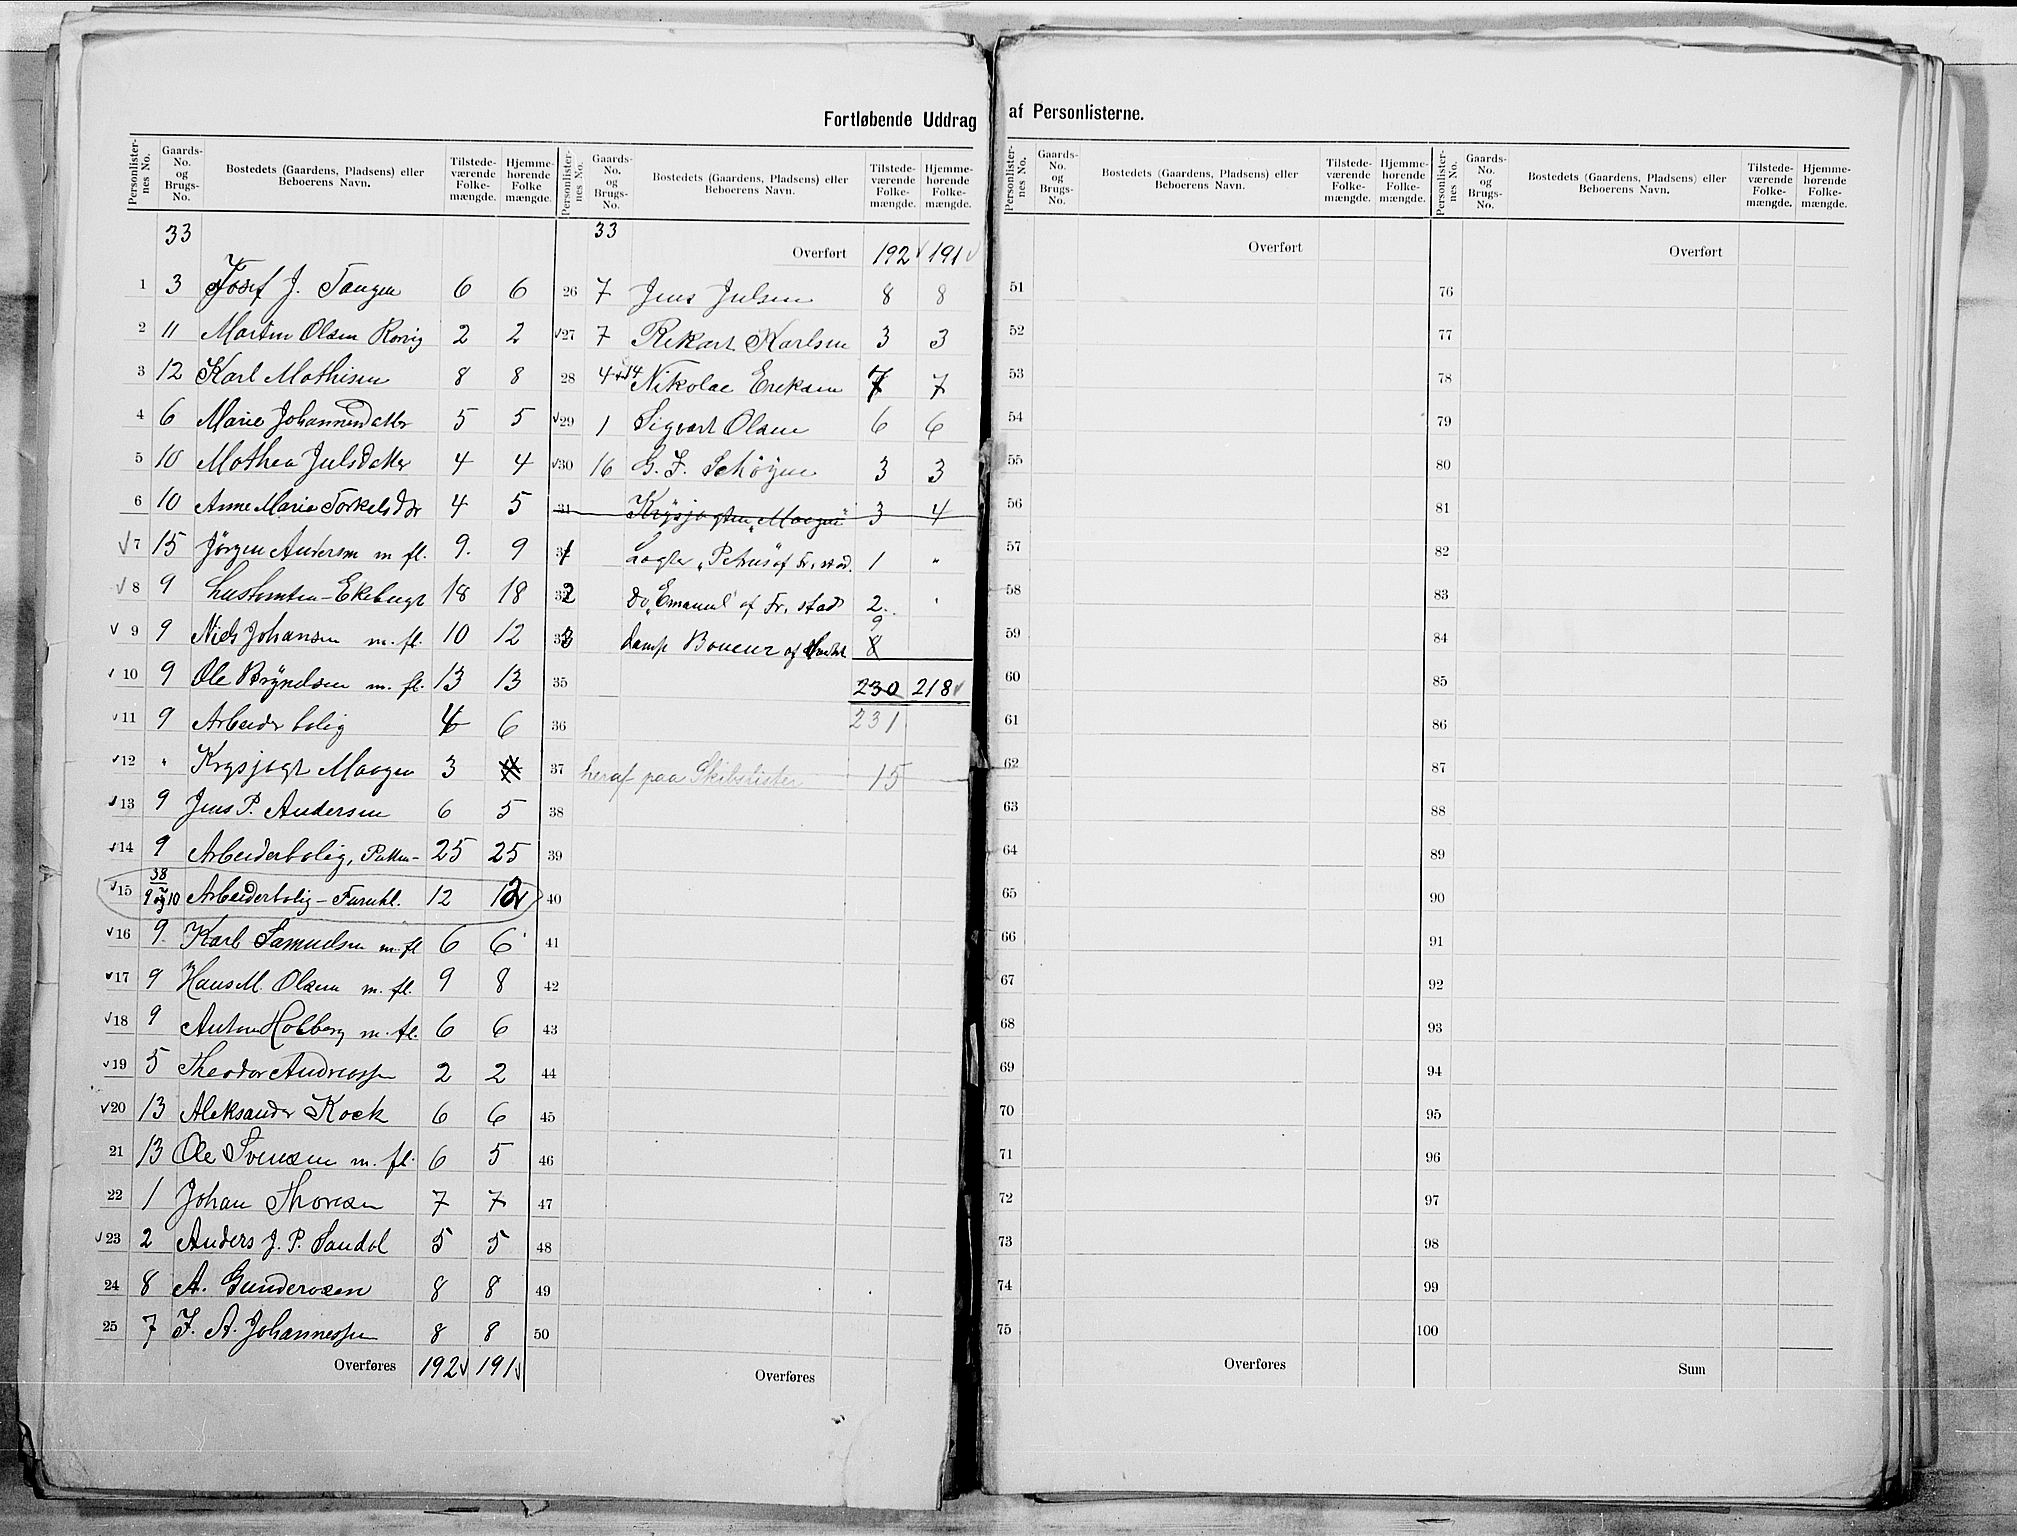 Fortløbende Uddrag af Personlisterne.
Personlister-nes No. Gaards-No. og Brugs-No. Bostedets (Gaardens, Pladsens) eller Beboerens Navn. Tilstede-værende Folke-mængde. Hjemme-hørende Folke mængde.
33
1 3 Josef J. Tangen 6 6
2 11 Martin Olsen Rørvig 2 2
3 12 Karl Mathisen 8 8
4 6 Marie Johannesdatter 5 5
5 10 Mathea Julsdatter 4 4
6 10 Anne Marie Torkelsdr 4 5
√7 15 Jørgen Andersen m fl. 9. 9
√8 9 Lustomten - Ekebergt 18 18
√9 9 Niels Johansen m. fl. 10 12
√10 9 Ole Brynelsen m. fl. 13 13
√11 9 Arbeiderbolig 4 6
√12 " Krysjagt Maagen 3
√13 9 Jens P. Andersen 6 5
√14 9 Arbeiderbolig, 25 25
√15 38 9 og 10 Arbeiderbolig - Furuhl. 12 12
√16 9 Karl Samuelsen m. fl 6 6
√17 9 Hans M. Olsen m. fl. 9 8
√18 9 Anton Holberg m. fl. 6 6
√19 5 Theodor Andreassen 2 2
√20 13 Aleksander Kock 6 6
21 13 Ole Svensen m. fl. 6 5
22 1 Johan Thoresen 7 7
√23 2 Anders J. P. Sandal 5 5
24 8 A. Gundersen 8 8
25 7 F. A. Johannessen 8 8
Overføres 192√ 191√
Personlister-nes No. Gaards-No. og Brugs-No. Bostedets (Gaardens, Pladsens) eller Beboerens Navn. Tilstede-værende Folke-mængde. Hjemme-hørende Folke-mængde.
33 Overført 192√ 191√
26 7 Jens Julsen 8 8
√27 7 Rikart Karlsen 3 3
28 4+14 Nikolae Ereksen 7 7
√29 1 Sigvart Olsen 6 6
√30 16 G. F. Schøyen 3 3
31 Krysjagten „Maagen" 3 4
31 Logter „Petrus" af Fr.stad. 1 "
32 Do „Emanuel" af Fr.stad 2. "
33 Damp Boneur af 8 9
35 230 218√
36 231
37 heraf paa Skibslister 15
38
39
40
41
42
43
44
45
46
47
48
49
50
Overføres
Personlister-nes No. Gaards-No. og Brugs-No. Bostedets (Gaardens, Pladsens) eller Beboerens Navn. Tilstede-værende Folke-mængde. Hjemme-hørende Folke-mængde.
Overført
51
52
53
54
55
56
57
58
59
60
61
62
63
64
65
66
67
68
69
70
71
72
73
74
75
Overføres
Personlister-nes No. Gaards-No. og Brugs-No. Bostedets (Gaardens, Pladsens) eller Beboerens Navn. Tilstede-værende Folke-mængde. Hjemme-hørende Folke-mængde.
Overført
76
77
78
79
80
81
82
83
84
85
86
87
88
89
90
91
92
93
94
95
96
97
98
99
100
Sum